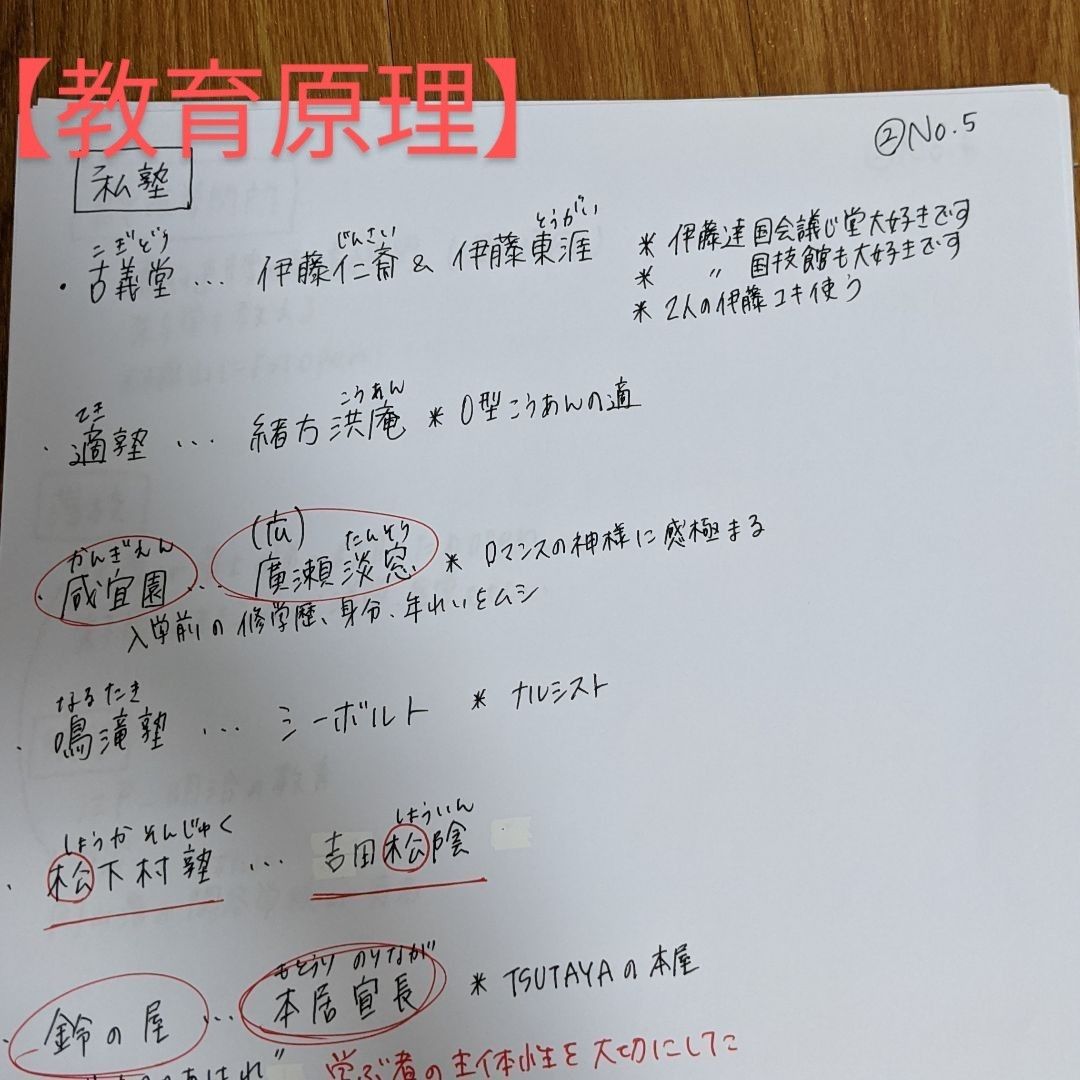 【教育原理】
②No.5
私塾
こぎどう じんさい とうがい
・古義堂 … 伊藤仁斎 & 伊藤東涯
* 伊藤達国会議じ堂大好きです
* 〃 国技館も大好きです
* 2人の伊藤ユキ使う
てき こうあん
・適塾 … 緒方洪庵 * O型こうあんの適
かんぎえん (広) たんそう
・咸宜園 … 廣瀬淡窓 * ロマンスの神様に感極まる
入学前の修学歴、身分、年れいをムシ
なるたき
・鳴滝塾 … シーボルト * ナルシスト
しょうかそんじゅく しょういん
・松下村塾 … 吉田松陰
もとうり のりなが
・鈴の屋 … 本居宣長 * TSUTAYAの本屋
のあはれ" 学ぶ者の主体性を大切にした